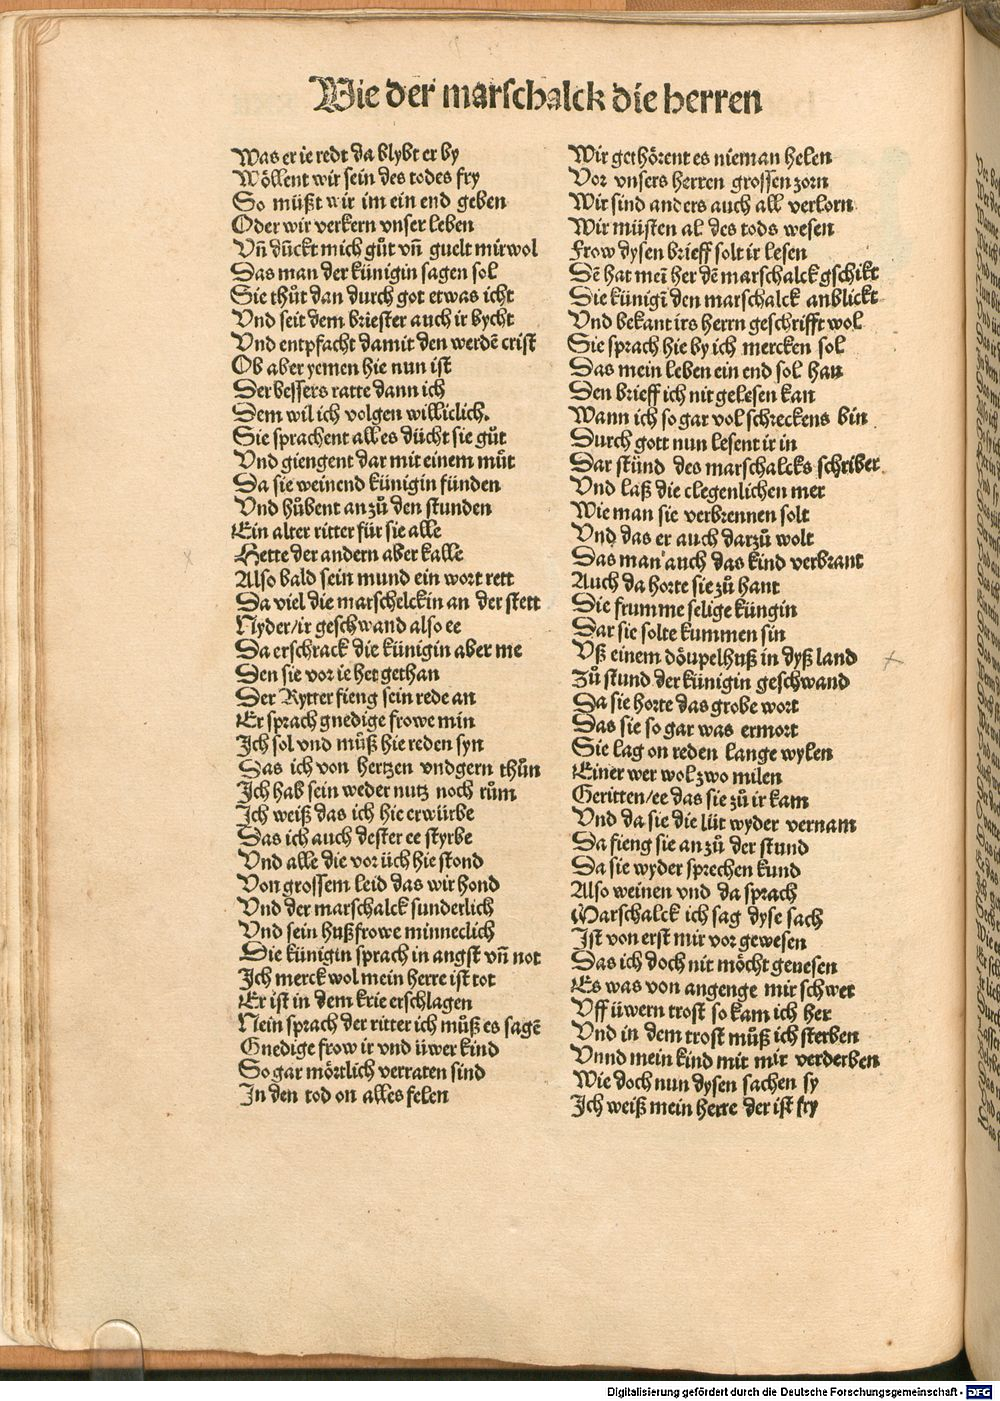 Wie der marschalck die herren
Was er ie redt da blybt er by
Wöllent wir sein des todes fry
So müßt wir im ein end geben
Oder wir verkern vnser leben
Vñ dückt mich gůt vñ guelt mir wol
Das man der künigin sagen sol
Sie thůt dan durch got etwas icht
Vnd seit dem briester auch ir bycht
Vnd entpfacht damit den werdẽ crist
Ob aber yemen hie nun ist
Der bessers ratte dann ich
Dem wil ich volgen williclich.
Sie sprachent alles dücht sie gůt
Vnd giengent dar mit einem můt
Da sie weinend künigin fünden
Vnd hůbent an zů den stunden
Ein alter ritter für sie alle
Hette der andern aber kalle
Also bald sein mund ein wort rett
Da viel die marschelckin an der stett
Nyder/ir geschwand also ee
Da erschrack die künigin aber me
Den sie vor ie het gethan
Der Rytter fieng sein rede an
Er sprach gnedige frowe min
Ich sol vnd můß hie reden syn
Das ich von hertzen vndgern thůn
Ich hab sein weder nutz noch rům
Ich weiß das ich hie erwürbe
Das ich auch dester ee styrbe
Vnd alle die vor üch hie stond
Von grossem leid das wir hond
Vnd der marschalck sunderlich
Vnd sein hußfrowe minneclich
Die künigin sprach in angst vñ not
Ich merck wol mein herre ist tot
Er ist in dem krie erschlagen
Nein sprach der ritter ich můß es sagẽ
Gnedige frow ir vnd üwer kind
So gar mörtlich verraten sind
In den tod on alles felen
Wir gethörent es nieman helen
Vor vnsers herren grossen zorn
Wir sind anders auch all verlorn
Wir müsten al des tods wesen
Frow dysen brieff solt ir lesen
Dẽ hat meĩ her dẽ marschalck gschikt
Die künigĩ den marschalck anblickt
Vnd bekant irs herrn geschrifft wol
Sie sprach hie by ich mercken sol
Das mein leben ein end sol han
Den brieff ich nit gelesen kan
Wann ich so gar vol schreckens bin
Durch gott nun lesent ir in
Dar stünd des marschalcks schriber
Vnd laß die clegenlichen mer
Wie man sie verbrennen solt
Vnd das er auch darzů wolt
Das man auch das kind verbrant
Auch da horte sie zů hant
Die frumme selige küngin
Dar sie solte kummen sin
Vß einem döupelhuß in dyß land
Zů stund der künigin geschwand
Da sie horte das grobe wort
Das sie so gar was ermort
Sie lag on reden lange wylen
Einer wer wol zwo milen
Geritten/ee das sie zů ir kam
Vnd da sie die lüt wyder vernam
Da fieng sie an zů der stund
Da sie wyder sprechen kund
Also weinen vnd da sprach
Marschalck ich sag dyse sach
Ist von erst mir vor gewesen
Das ich doch nit möcht genesen
Es was von angenge mir schwer
Vff üwern trost so kam ich her
Vnd in dem trost můß ich sterben
Vnnd mein kind mit mir verderben
Wie doch nun dysen sachen sy
Ich weiß mein herre der ist fry
Digitalisierung gefördert durch die Deutsche Forschungsgemeinschaft - DFG